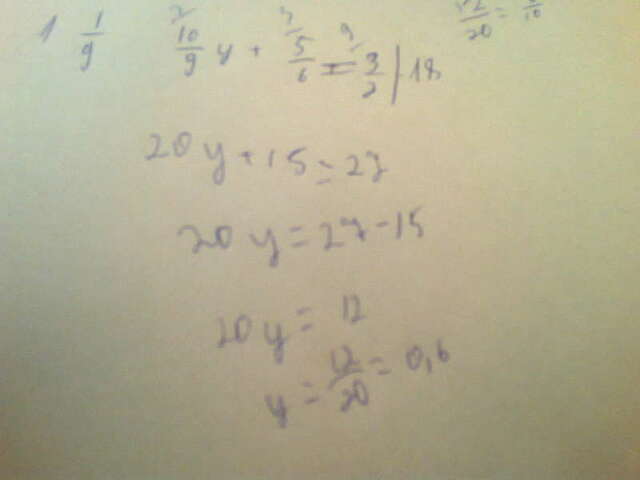 1 1/9 10/9 y + 5/6 = 3/2 | ·18 12/20 = 6/10
20y + 15 = 27
20y = 27 - 15
20y = 12
y = 12/20 = 0,6